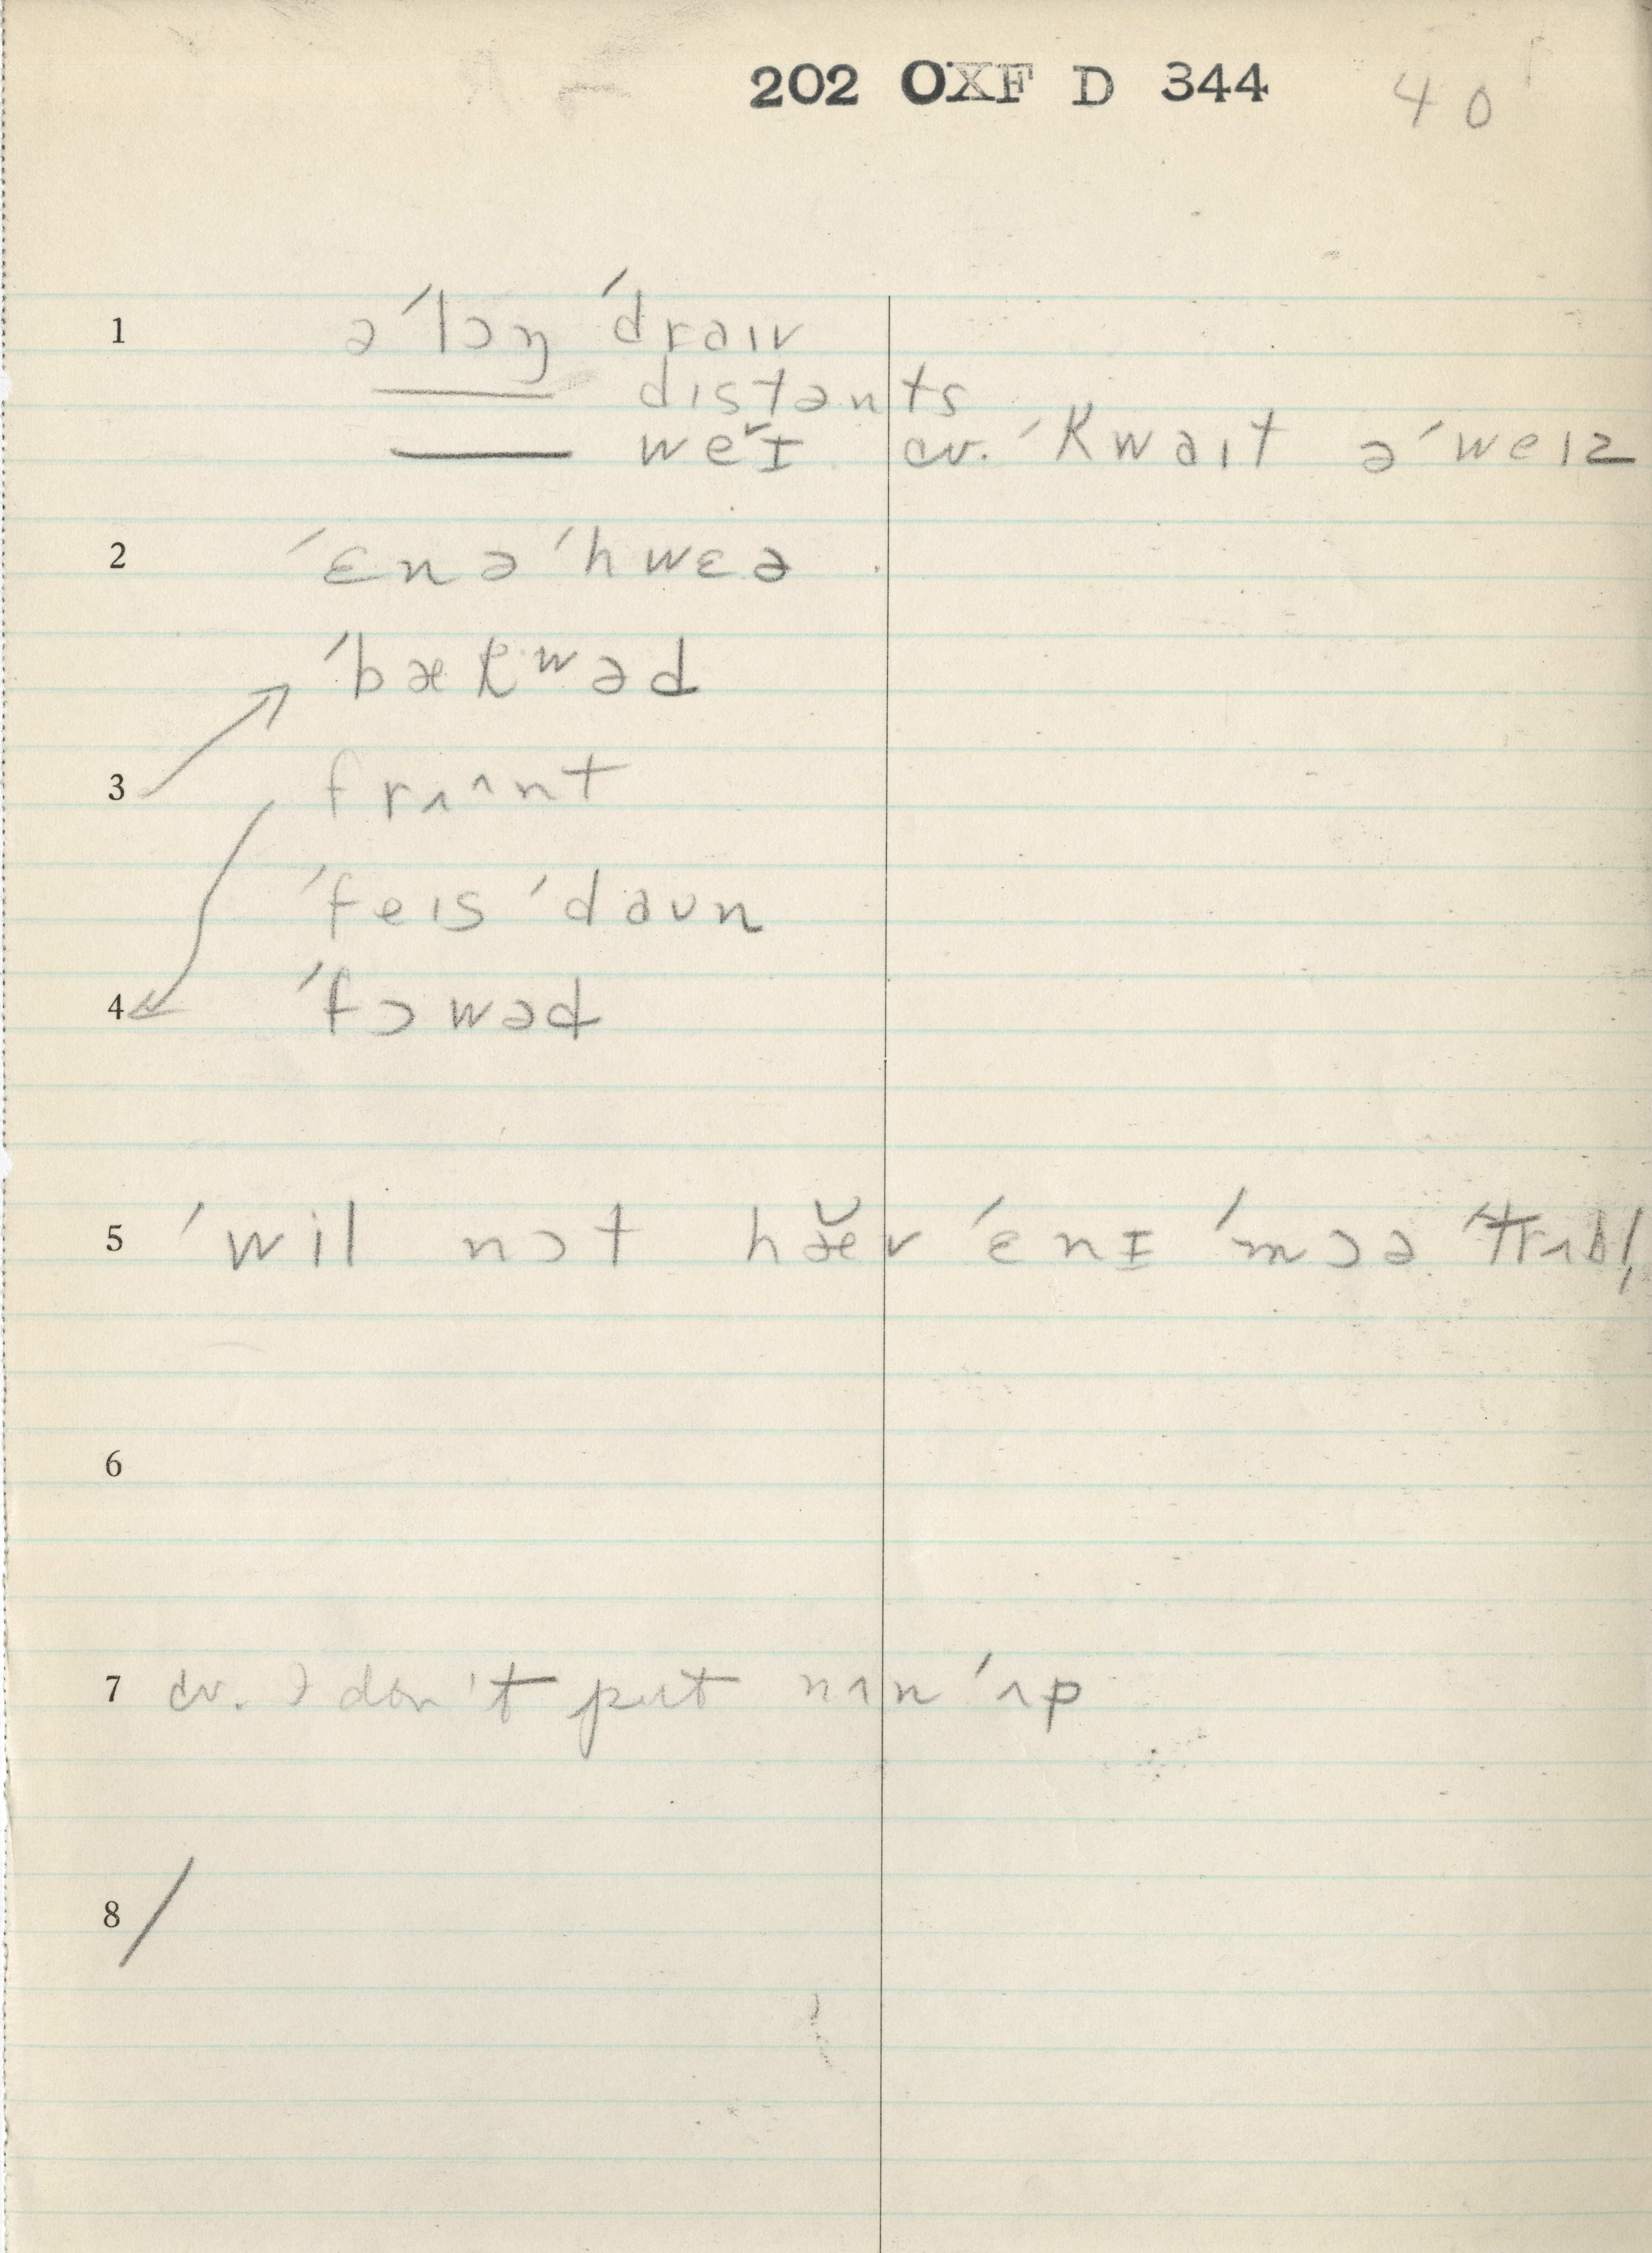 202 OXF D 344 40
1 ə ˊlɔŋ ˊdraɪv
distənts
weˇɪ cv. ˊkwaɪt əˊweɪz
2 ˊɛnəˊhwɛə
ˊbækʷəd
3 frʌ^nt
ˊfeɪs ˊdaʊn
4 ˊfɔwəd
5 ˊwil nɔt hæ̆v ˊɛnɪ ˊmɔə ˊtrʌbl̩
6
7 cv. I don't put nʌn ˊʌp
8 /